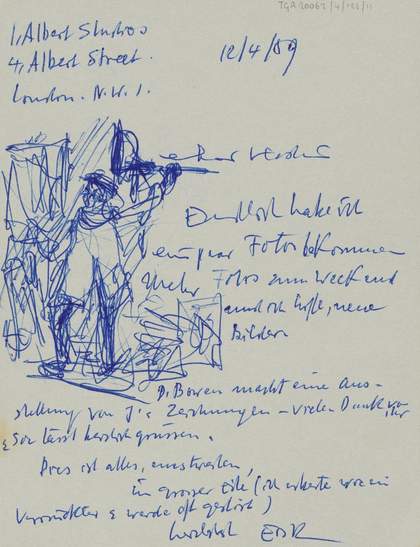 TGA 20062/4/122/11
1, Albert Studios
4, Albert Street.
12/4/59
London. N.W.1.
Endlich habe ich
ein paar Fotos bekommen
Mehr Fotos zum Weekend
und ich hoffe, neue
Bildern
D. Bowen macht eine Aus-
stellung von J's Zeichnungen – vielen Dank
& lässt herzlich grüssen.
Dies ist alles, einstweilen,
in grosser Eile (ich arbeite wie ein
Verrückter & werde oft gestört)
herzlich